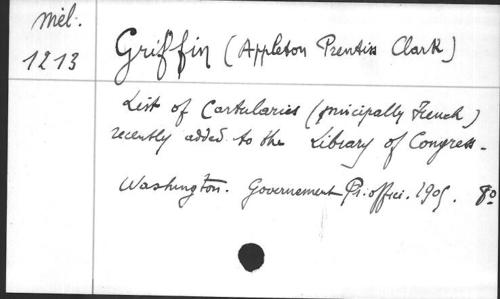 mél.
1213
Griffin (Appleton Prentiss Clark)
List of Cartularies (principally French)
recently added to the Library of Congress.
Washington. Governement Pr. offici. 1905. 8o